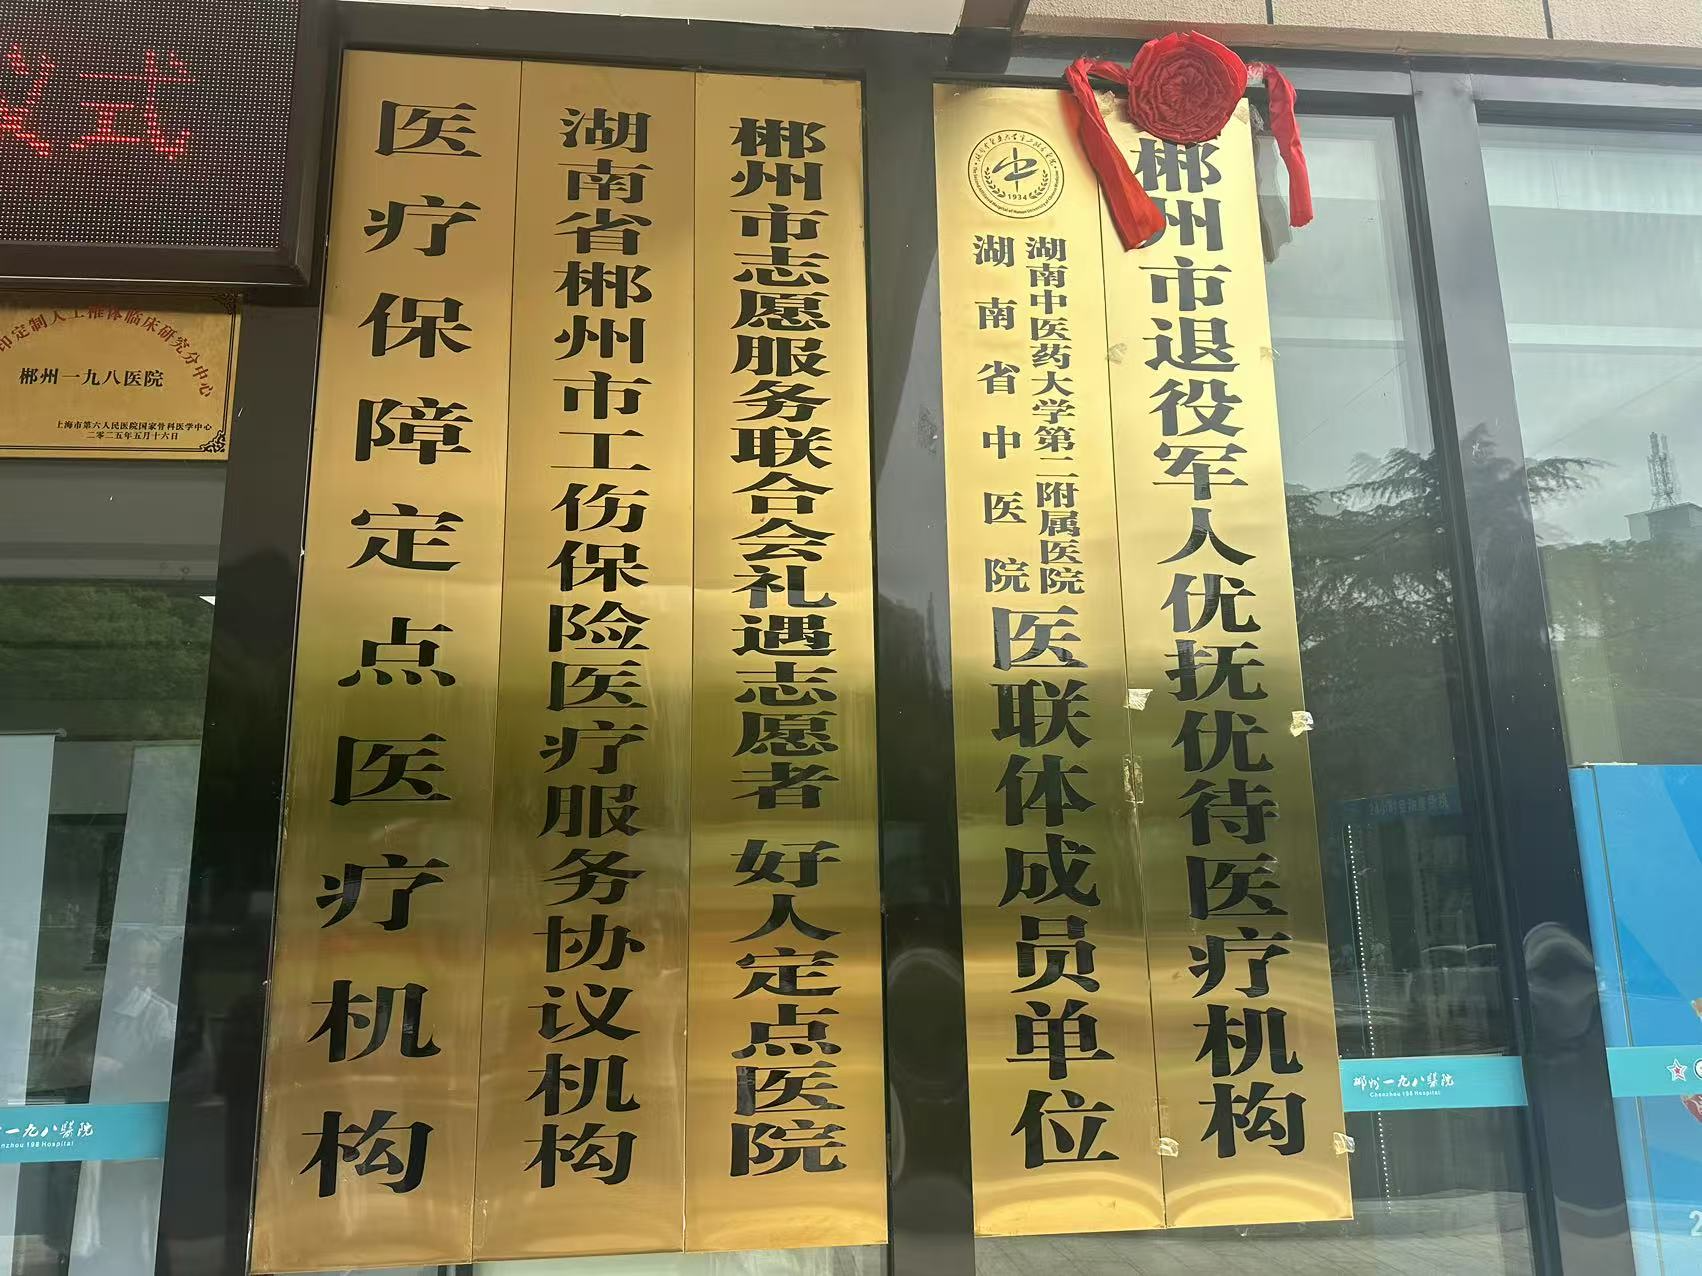 仪式
印定制人工椎体临床研究分中心
郴州一九八医院
上海市第六人民医院国家骨科医学中心
二零二五年五月十六日
医疗保障定点医疗机构
湖南省郴州市工伤保险医疗服务协议机构
郴州市志愿服务联合会礼遇志愿者 好人定点医院
1934
湖南中医药大学第二附属医院
湖南省中医院
医联体成员单位
郴州市退役军人优抚优待医疗机构
一九八醫院
nzhou 198 Hospital
郴州一九八醫院
Chenzhou 198 Hospital